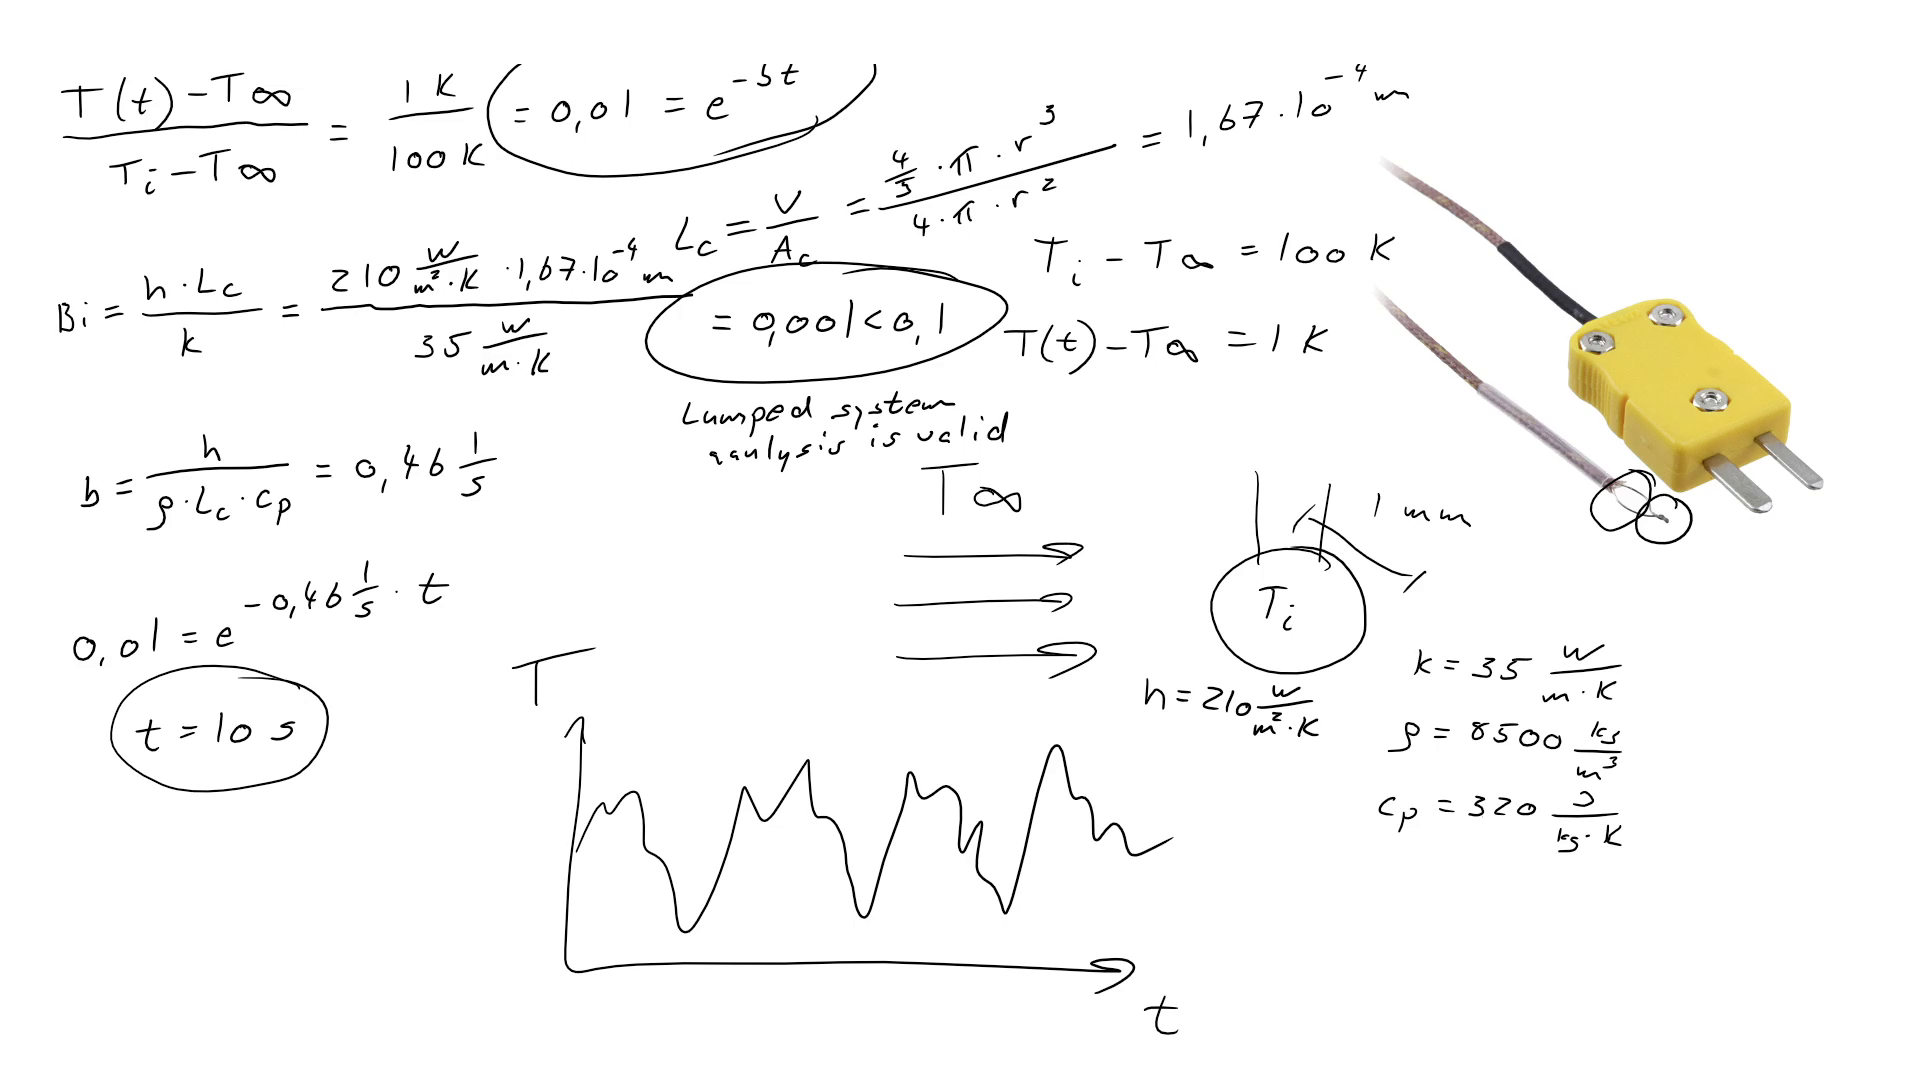 T(t) - T∞ / Ti - T∞ = 1 K / 100 K = 0,01 = e^-bt
Lc = V / Ac = 4/3 · π · r^3 / 4 · π · r^2 = 1,67 · 10^-4 m
Bi = h · Lc / k = 210 W/m²·K · 1,67 · 10^-4 m / 35 W/m·K = 0,001 < 0,1
Lumped system
qanlysis is valid
Ti - T∞ = 100 K
T(t) - T∞ = 1 K
b = h / ρ · Lc · cp = 0,46 1/s
0,01 = e^-0,46 1/s · t
t = 10 s
T∞
1 mm
Ti
h = 210 W/m²·K
k = 35 W/m·K
ρ = 8500 kg/m³
cp = 320 J/kg·K
T
t